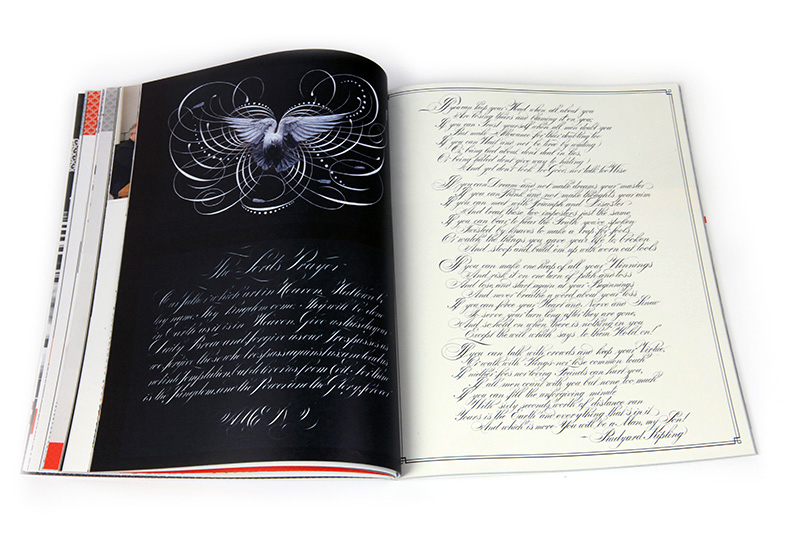 The Lord's Prayer
Our father which art in Heaven, Hallowed
by name. Thy kingdom come. Thy will be done
in Earth as it is in Heaven. Give us this day our
Daily Bread and forgive us our Trespasses as
we forgive those who trespass against us and lead us
not into Temptation but deliver us from Evil. For thine
is the Kingdom and the Power and the Glory forever
AMEN
If you can keep your Head when all about you
Are losing theirs and blaming it on you;
If you can Trust yourself when all men doubt you
But make Allowance for their doubting too:
If you can Wait and not be tired by waiting
Or being lied about, dont deal in lies,
Or being hated dont give way to hating
And yet don't look too Good, nor talk too Wise
If you can Dream and not make dreams your master
If you can Think and not make thoughts your aim
If you can meet with Triumph and Disaster
And treat those two impostors just the same
If you can bear to hear the Truth you've spoken
Twisted by knaves to make a trap for fools
Or watch the things you gave your life to, broken
And stoop and build 'em up with worn out tools
If you can make one heap of all your Winnings
And risk it on one turn of pitch and toss
And lose, and start again at your Beginnings
And never breathe a word about your loss
If you can force your Heart and Nerve and Sinew
To serve your turn long after they are gone,
And so hold on when there is nothing in you
Except the will which says to them Hold on!
If you can talk with crowds and keep your Virtue,
Or walk with Kings nor lose common touch
If neither foes nor loving Friends can hurt you,
If all men count with you but none too much
If you can fill the unforgiving minute
With sixty seconds worth of distance ran
Yours is the Earth and everything that's in it
And which is more You will be a Man, my Son!
- Rudyard Kipling